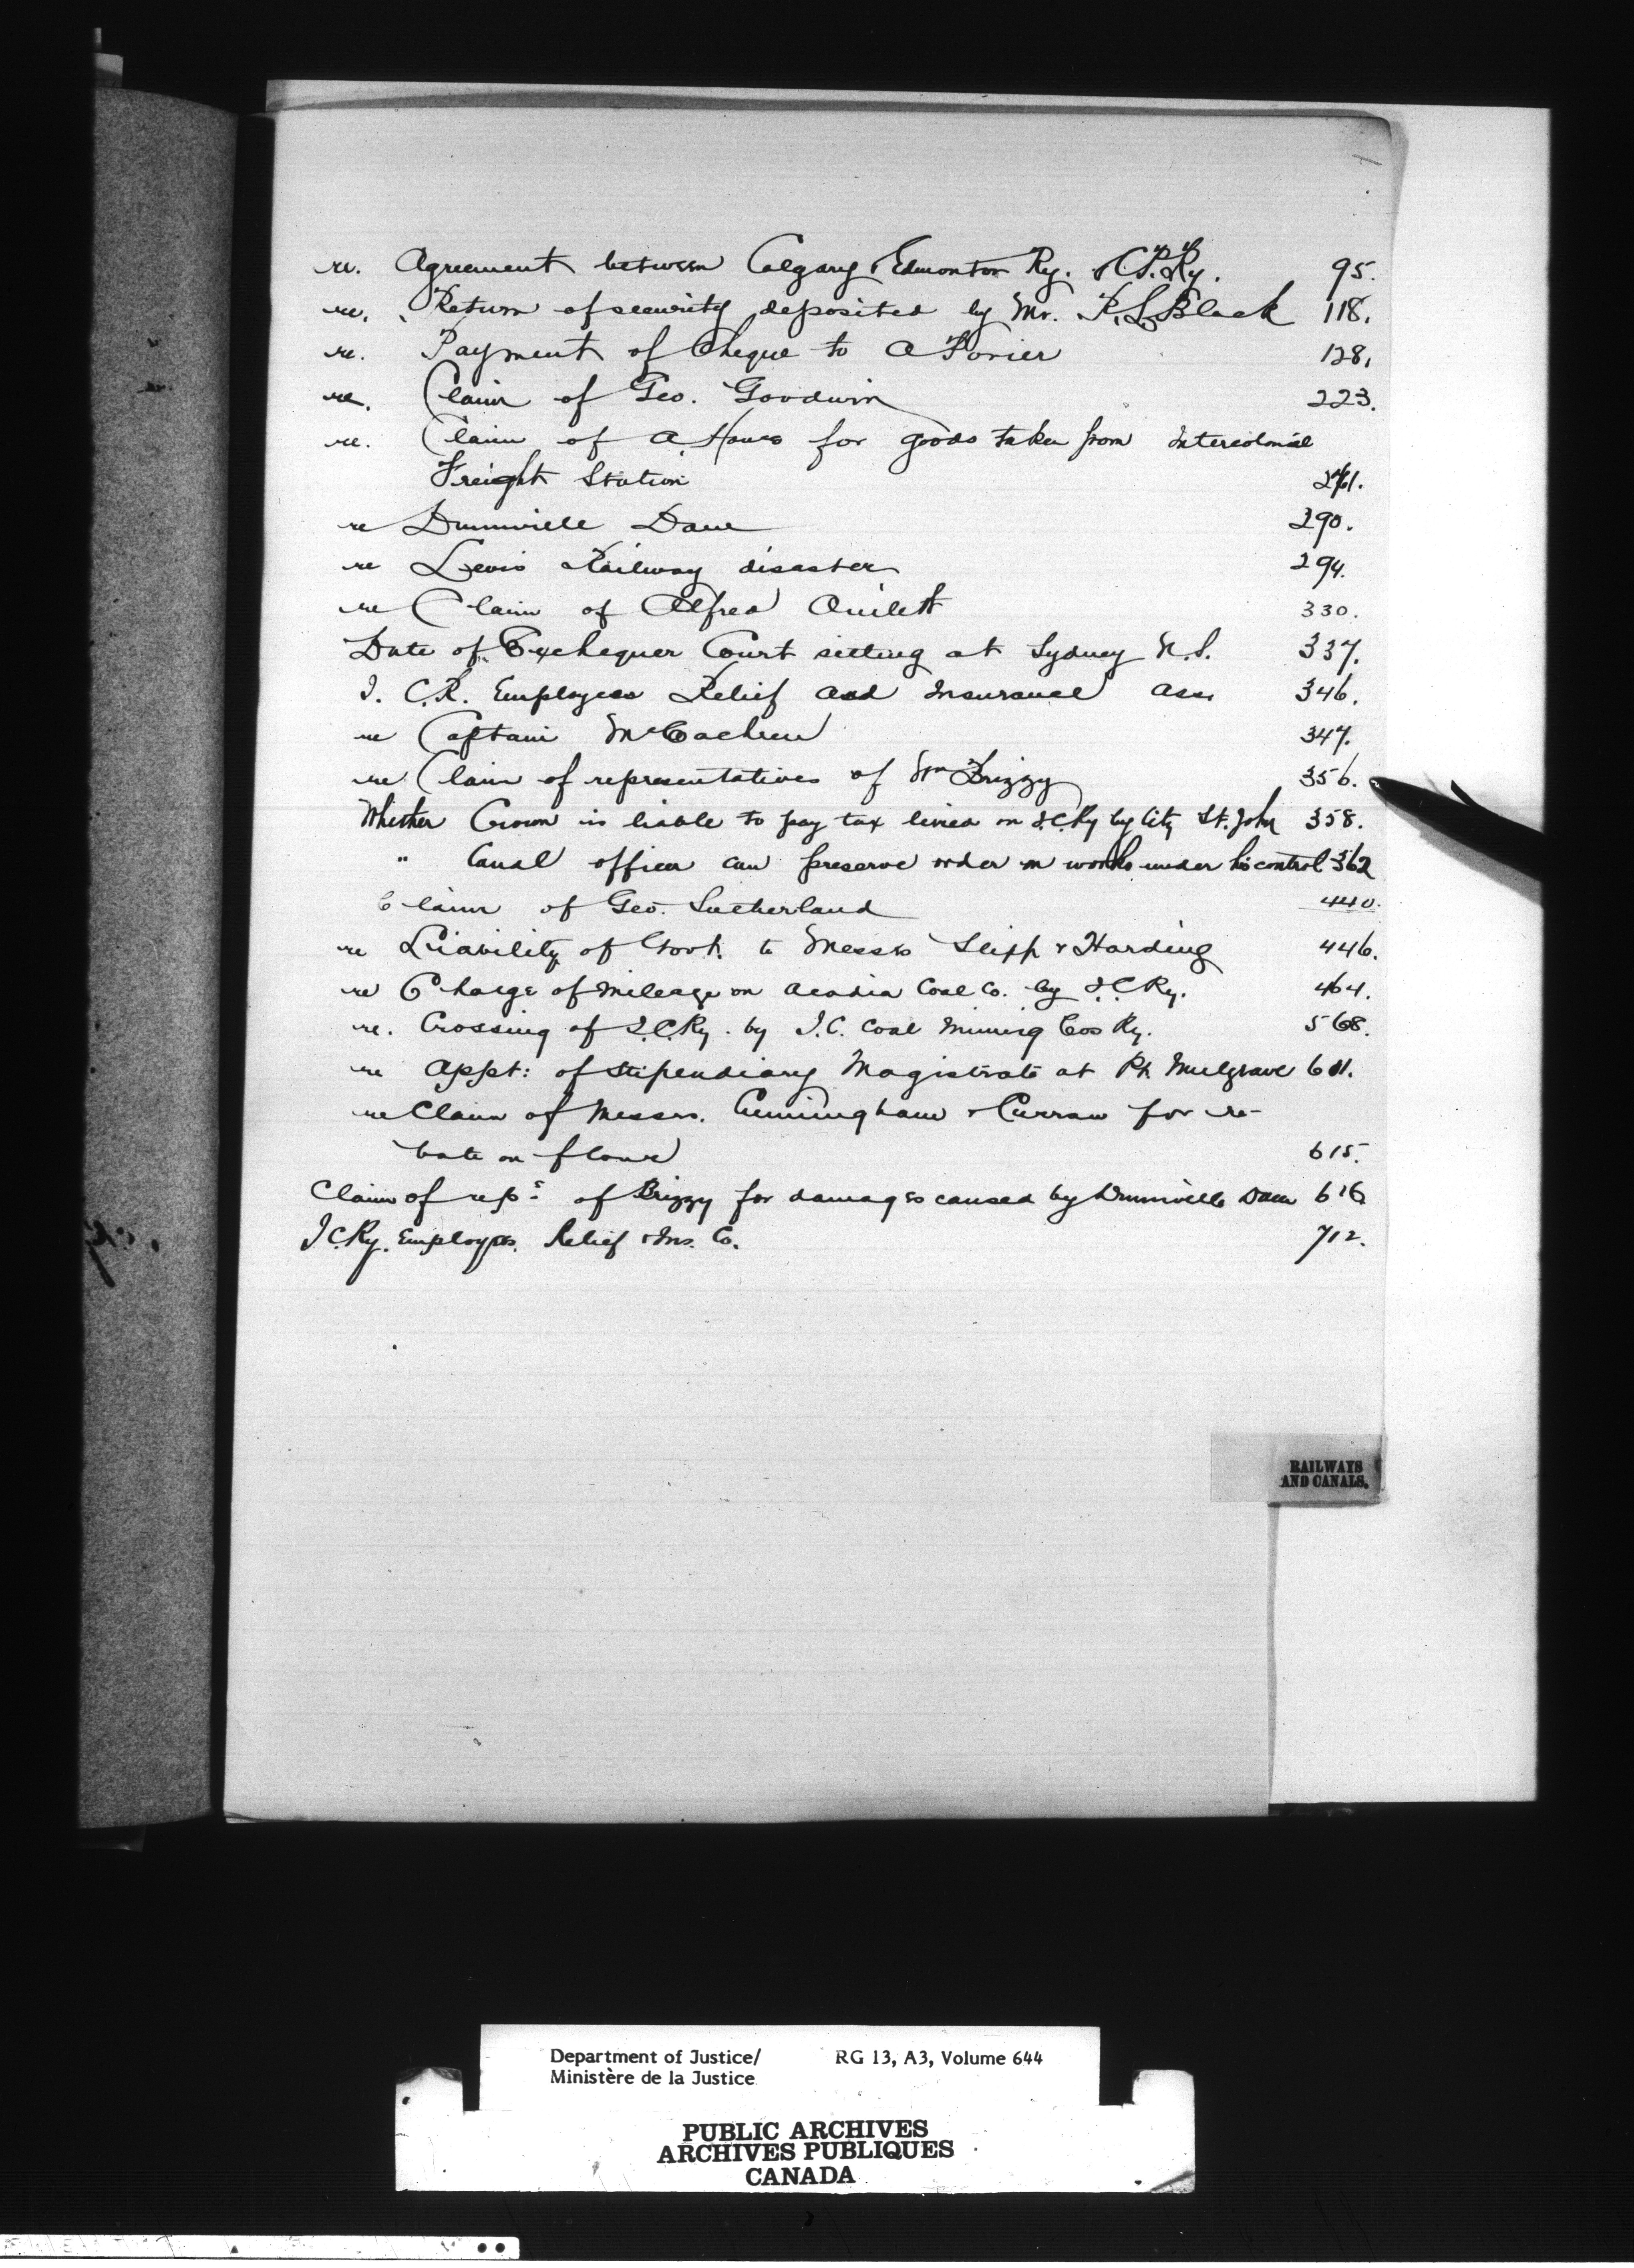 re. Agreement between Calgary & Edmonton Ry. & C.P. Ry. 95.
re. Return of security deposited by Mr. R. S. Black 118.
re. Payment of Cheque to A 128.
re. Claim of Geo. Goodwin 223.
re. Claim of A. for goods taken from Intercolonial
Freight Station 261.
re Dunnville Dam 290.
re Levis Railway disaster 294.
re Claim of Alfred 330.
Date of Exchequer Court sitting at Sydney N.S. 337.
I. C.R. Employees Relief and Insurance Ass. 346.
re Captain 347.
re Claim of representatives of Wm Brizzy 356.
Whether Crown is liable to pay tax levied on I.C.Ry by City St. John 358.
" Canal officer can preserve order on works under his control 362
Claim of Geo. Sutherland 440.
re Liability of Govt. to Messrs Slipp & Harding 446.
re Charge of Mileage on Acadia Coal Co. by I.C.Ry. 464.
re. Crossing of I.C.Ry. by I.C. Coal Mining Cos Ry. 568.
re Appt: of Stipendiary Magistrate at Pt. Mulgrave 611.
re Claim of Messrs. Cunningham & Curran for re-
bate on flour 615.
Claim of reps of Brizzy for damages caused by Dunnville Dam 616
I.C.Ry. Employees. Relief & Ins. Co. 712.
RAILWAYS
AND CANALS.
Department of Justice/ RG 13, A3, Volume 644
Ministère de la Justice
PUBLIC ARCHIVES
ARCHIVES PUBLIQUES
CANADA